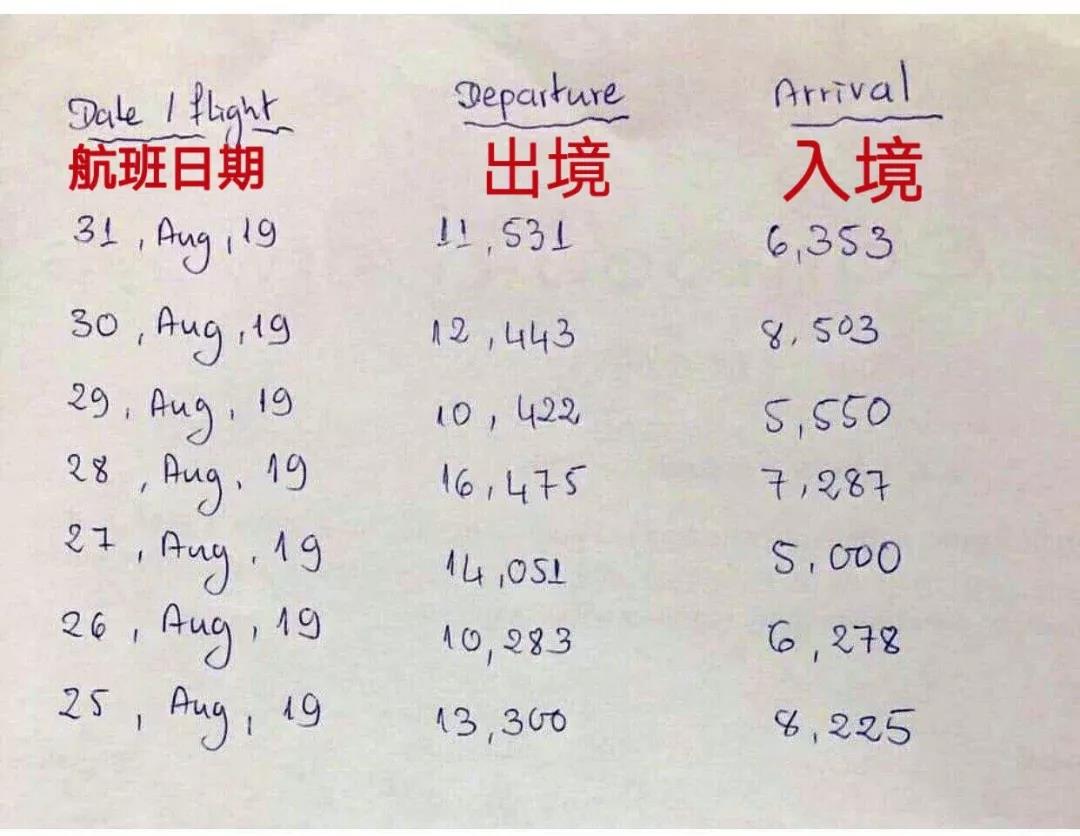 Date / flight Departure Arrival
航班日期 出境 入境
31, Aug, 19 11,531 6,353
30, Aug, 19 12,443 8,503
29, Aug, 19 10,422 5,550
28, Aug, 19 16,475 7,287
27, Aug, 19 14,051 5,000
26, Aug, 19 10,283 6,278
25, Aug, 19 13,300 8,225